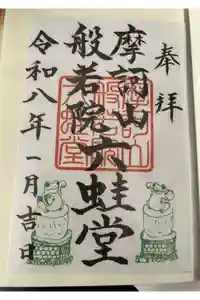 奉拝
摩訶山
般若院六蛙堂
令和八年一月吉日